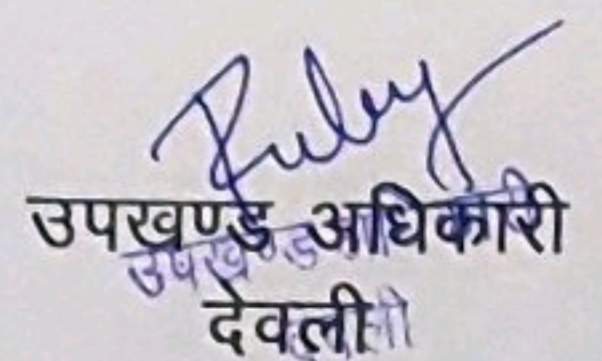 Ruby
उपखण्ड अधिकारी
उपखण्ड
देवली